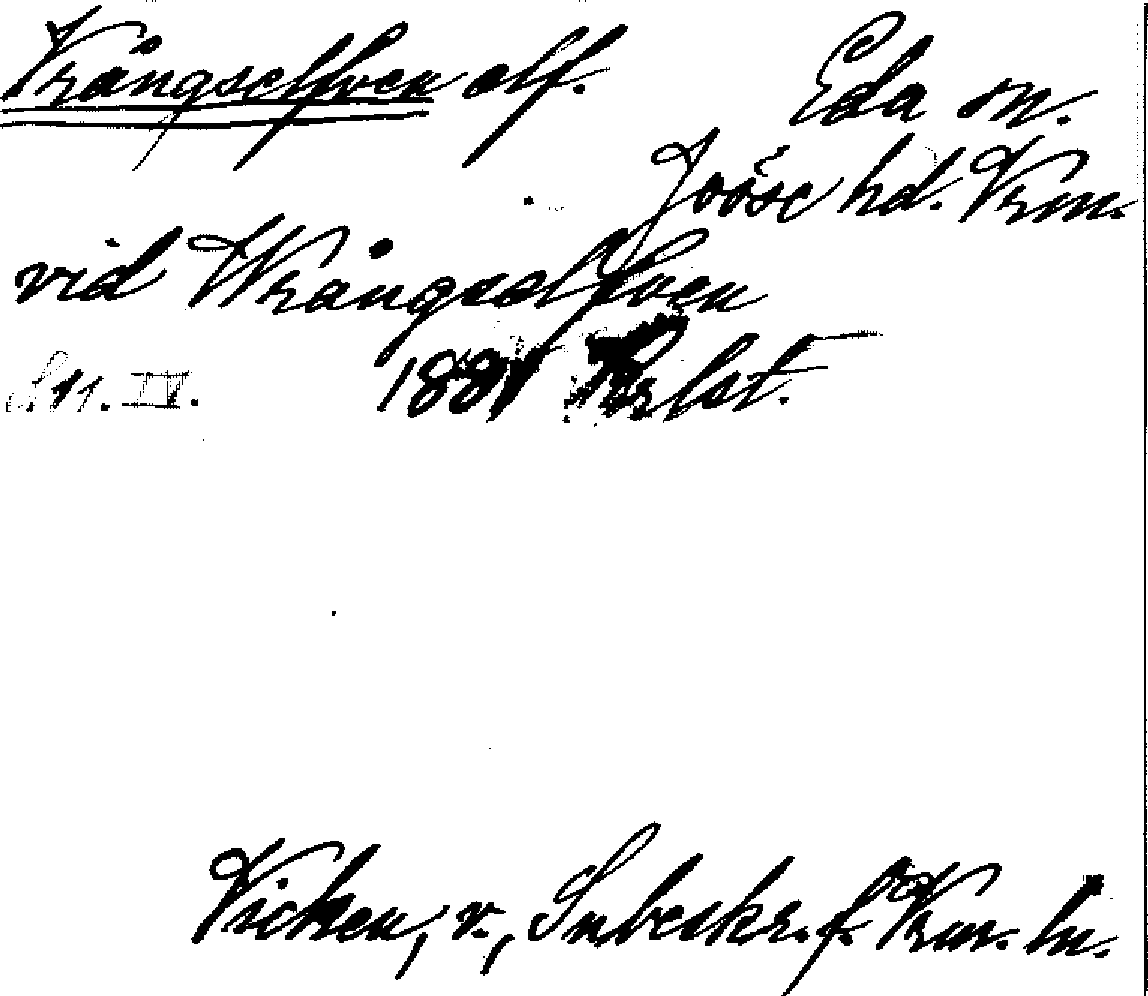 Vrångselfven elf. Eda sn.
Jösse hd. Vrm.
vid Wrångselfven
S 11. IV. 1881 Prlst.
Vicken, v., Snbeskr. f. Vrm. ln.